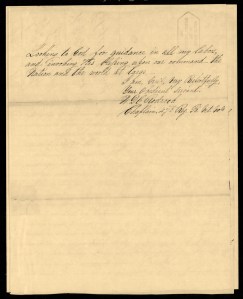 Looking to God for guidance in all my labor,
and invoking His blessing upon our command – the
Nation and the world at large.
I am, Very Respectfully
Your Obedient Servant
Chaplain